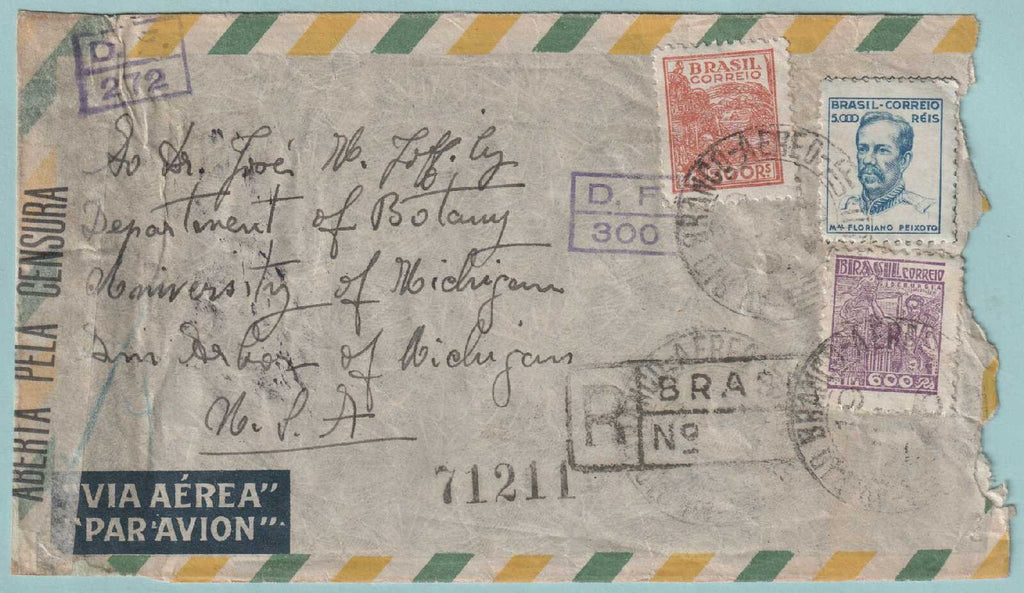 D.F.
272
ABERTA PELA CENSURA
To Dr. José M. Joffily
Department of Botany
University of Michigan
Ann Arbor of Michigan
U. S. A
D. F
300
BRASIL
CORREIO
BRASIL-CORREIO
5.000 RÉIS
MAL FLORIANO PEIXOTO
BRASIL CORREIO
600 RS
BRANCO-AEREO-DF
R
BRAS
Nº
71211
"VIA AÉREA"
"PAR AVION"